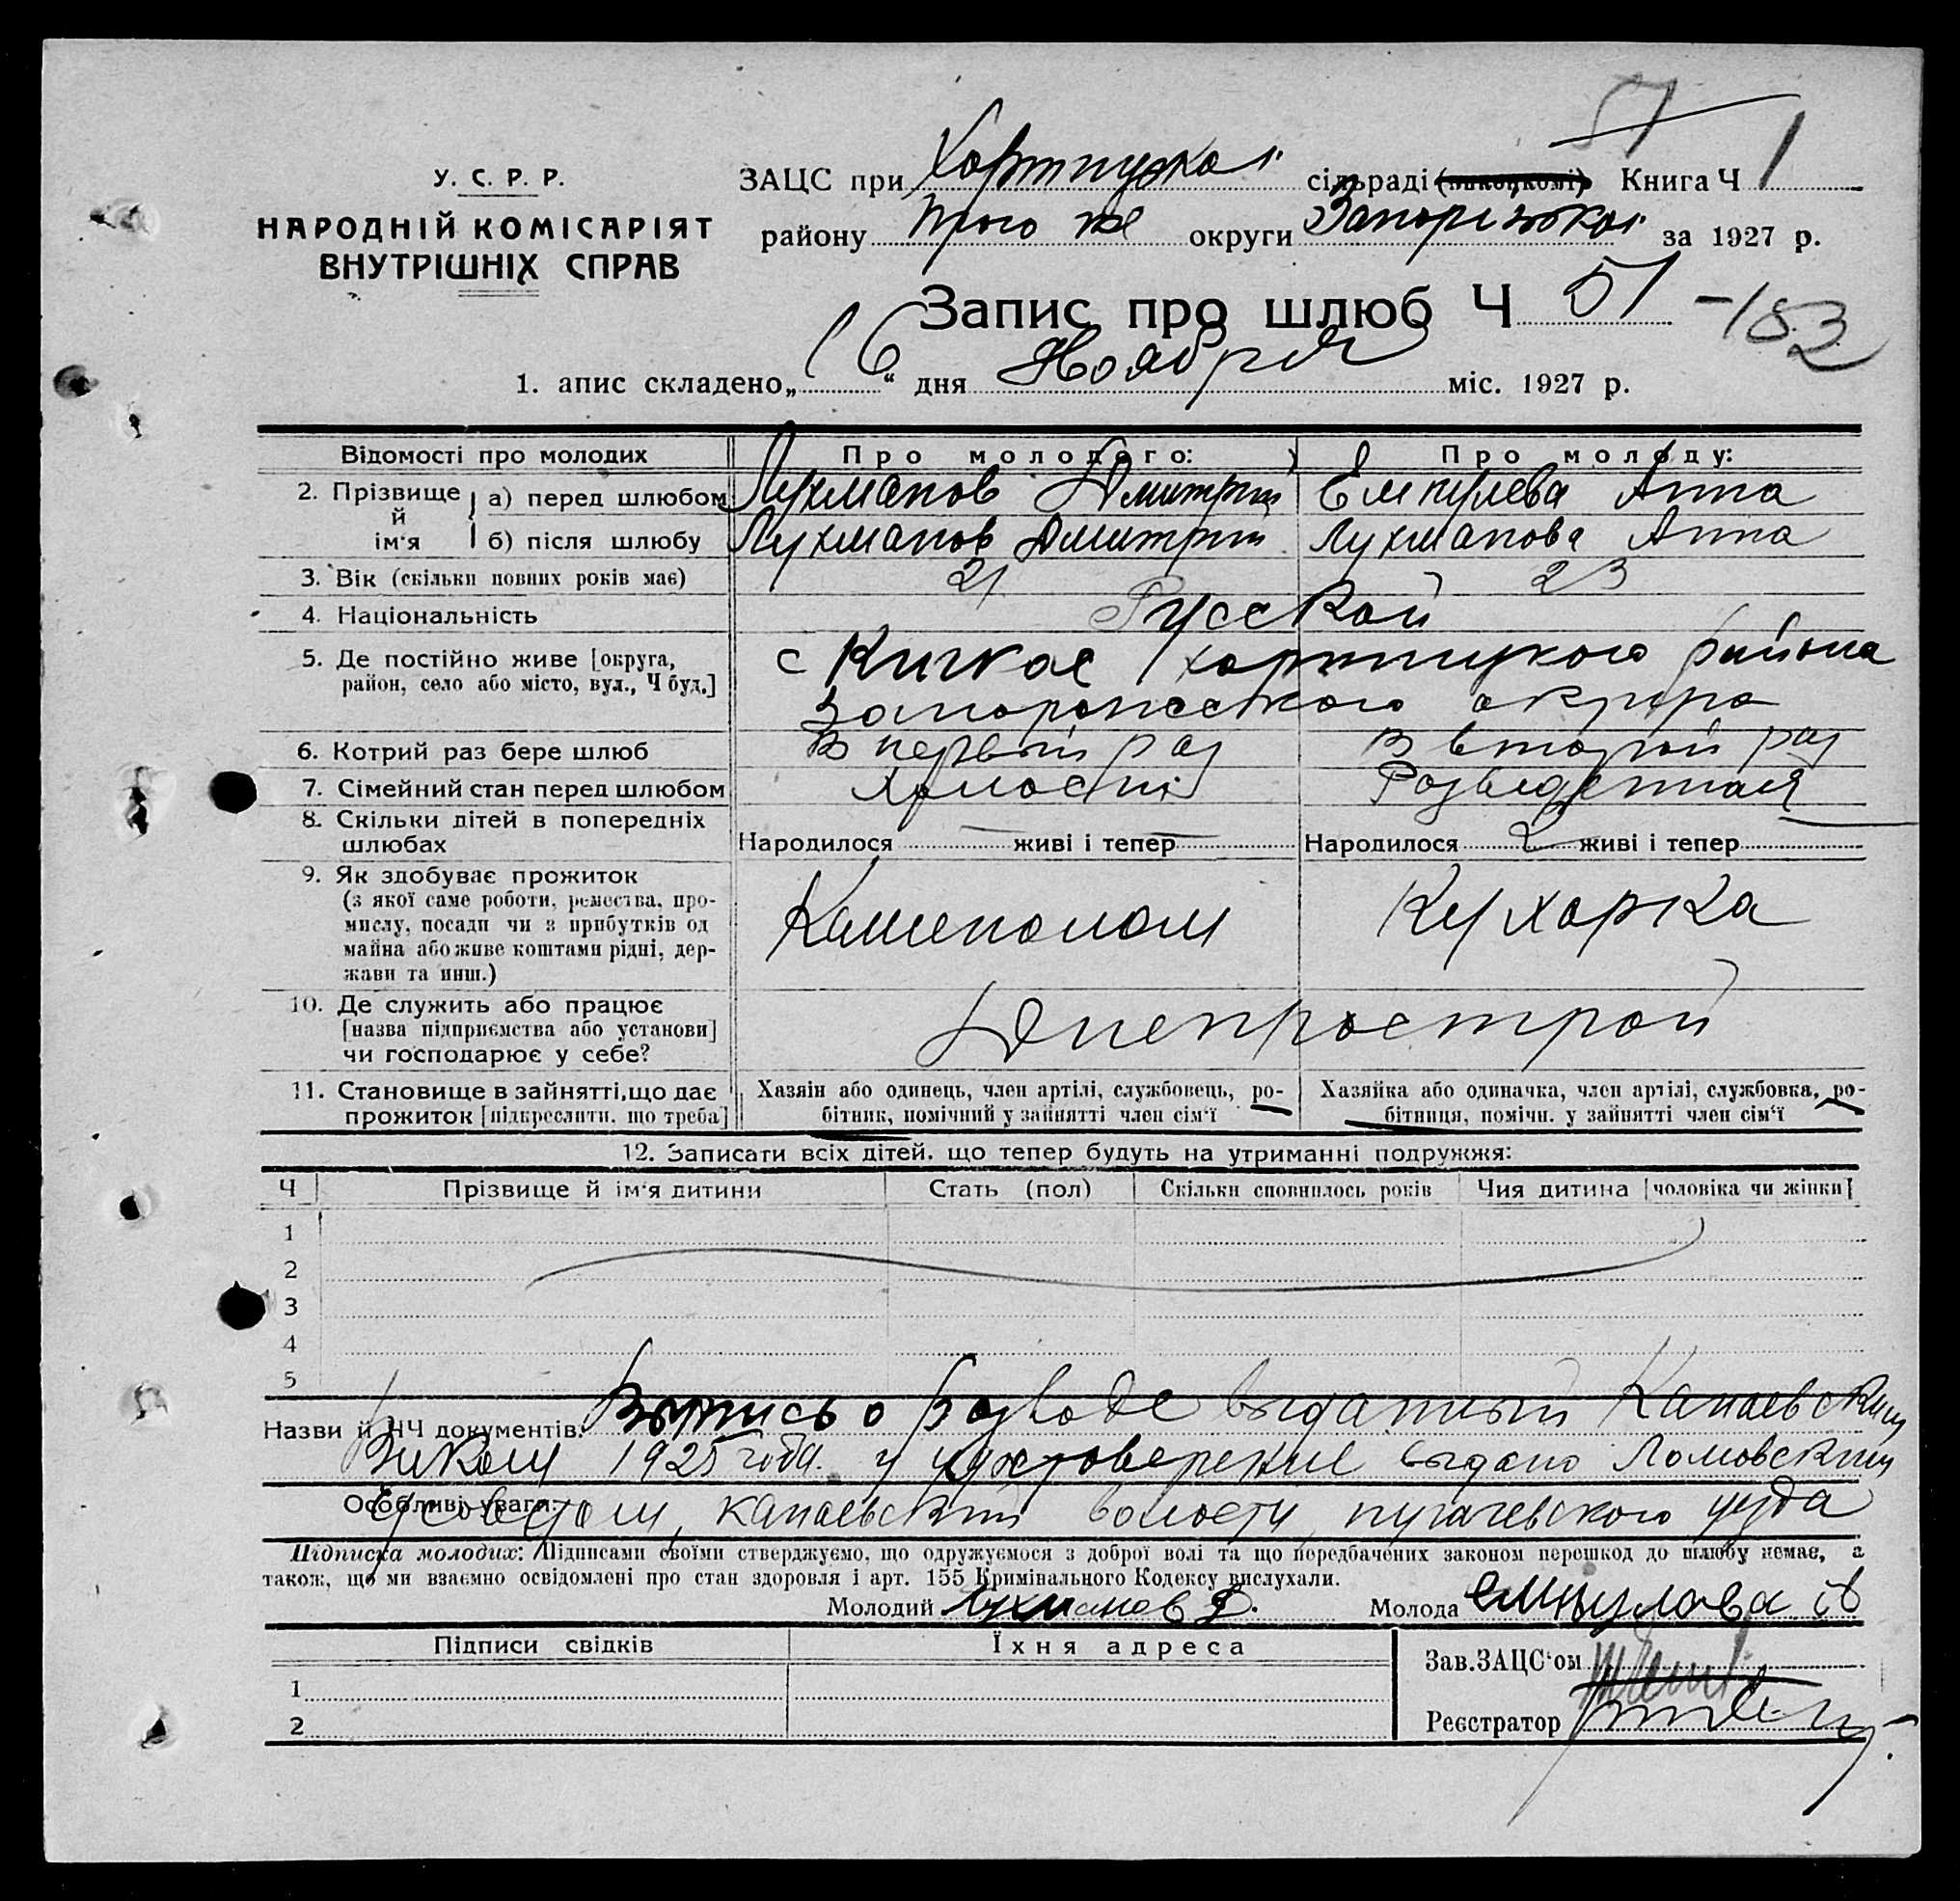 51
У. С. Р. Р.
НАРОДНІЙ КОМІСАРІЯТ
ВНУТРІШНІХ СПРАВ
ЗАЦС при Хортицькоі сільраді (виконкомі) Книга Ч 1
району того же округи Запорізькоі за 1927 р.
Запис про шлюб Ч 51 -183
1. апис складено „16“ дня Ноября міс. 1927 р.
Відомості про молодих Про молодого: Про молоду:
2. Прізвище й ім‘я а) перед шлюбом Лухманов Дмитрий Емкулева Анна
б) після шлюбу Лухманов Дмитрий Лухманова Анна
3. Вік (скільки повних років має) 21 23
4. Національність Русской
5. Де постійно живе [округа, район, село або місто, вул., Ч буд.] с Кичкас Хортицкого района
Запорожского округа
6. Котрий раз бере шлюб В первый раз В второй раз
7. Сімейний стан перед шлюбом Холостий Розведенная
8. Скільки дітей в попередніх шлюбах Народилося — живі і тепер — Народилося 2 живі і тепер
9. Як здобуває прожиток
(з якої саме роботи, ремества, про-
мислу, посади чи з прибутків од
майна або живе коштами рідні, дер-
жави та инш.) Каменолом Кухорка
10. Де служить або працює
[назва підприємства або установи]
чи господарює у себе? Днепрострой
11. Становище в зайнятті, що дає
прожиток [підкреслити, що треба]
Хазяїн або одинець, член артілі, службовець, ро-
бітник, помічний у зайнятті член сім‘ї
Хазяйка або одиначка, член артілі, службовка, ро-
бітниця, помічн. у зайнятті член сім‘ї
12. Записати всіх дітей, що тепер будуть на утриманні подружжя:
Ч Прізвище й ім‘я дитини Стать (пол) Скільки сповнилось років Чия дитина [чоловіка чи жінки]
1
2
3
4
5
Назви й ЧЧ документів: Выпись о розводе выданный Канаевским
Виком 1925 года. и удостоверение выдано Ломовским
Особливі уваги: с советом, канаевский волости, пугачевского уезда
Підписка молодих: Підписами своїми стверджуємо, що одружуємося з доброї волі та що передбачених законом перешкод до шлюбу немає, а
також, що ми взаємно освідомлені про стан здоровля і арт. 155 Кримінального Кодексу вислухали.
Молодий Лухманов Д. Молода Емкулова
Підписи свідків Їхня адреса
1
2
Зав.ЗАЦС‘ом
Реєстратор